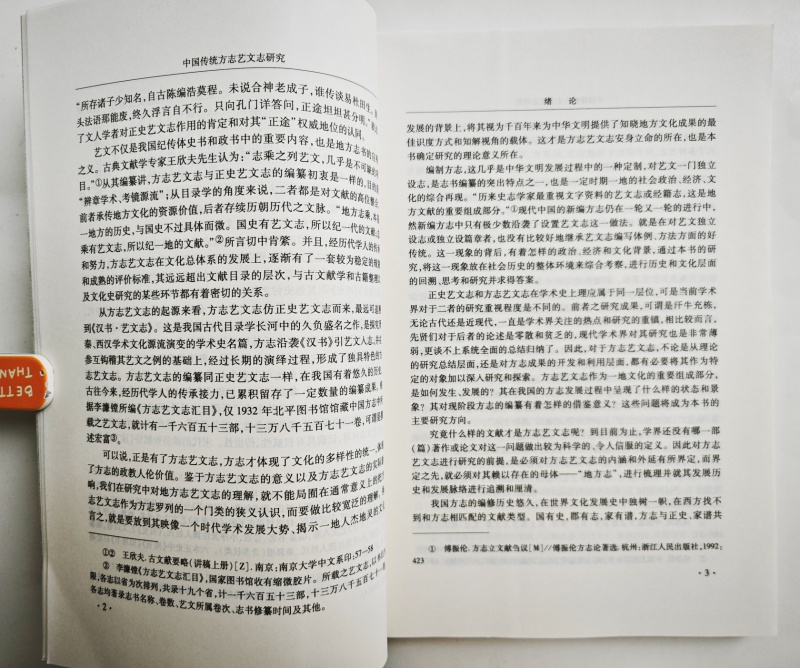 中国传统方志艺文志研究
“所存诸子少知名，自古陈编浩莫程。未说合神老成子，谁传谈易杜田生。
头法语那能废，终久浮言自不行。只向孔门详答问，正途坦坦甚分明。”
了文人学者对正史艺文志作用的肯定和对其“正途”权威地位的认同。
艺文不仅是我国纪传体史书和政书中的重要内容，也是地方志书的
之义。古典文献学专家王欣夫先生认为：“志乘之列艺文，几乎是不可
目。”①从其编纂讲，方志艺文志与正史艺文志的编纂初衷是一样的，目的
“辨章学术、考镜源流”；从目录学的角度来说，二者都是对文献的高位整
前者承传地方文化的资源价值，后者存续历朝历代之文脉。“地方志乘，本
一地方的历史，与国史不过具体而微。国史有艺文志，所以纪一代的文献；
乘有艺文志，所以纪一地的文献。”②所言切中肯綮。并且，经历代学人的
和努力，方志艺文志在文化总体系的发展上，逐渐有了一套较为稳定的
和成熟的评价标准，其远远超出文献目录的层次，与古文献学和古籍整理
及文化史研究的某些环节都有着密切的关系。
从方志艺文志的起源来看，方志艺文志仿正史艺文志而来，最远可追
到《汉书·艺文志》。这是我国古代目录学长河中的久负盛名之作，是探究
秦、西汉学术文化源流演变的学术史名篇，方志沿袭《汉书》引艺文入志，并
参互钩稽其艺文之例的基础上，经过长期的演绎过程，形成了独具特色的
志艺文志。方志艺文志的编纂同正史艺文志一样，在我国有着悠久的历史
古往今来，经历代学人的传承接力，已累积留存了一定数量的编纂成果。
据李濂镗所编《方志艺文志汇目》，仅1932年北平图书馆馆藏中国方志中
载之艺文志，就计有一千六百五十三部，十三万八千五百七十一卷，可谓
述宏富③。
可以说，正是有了方志艺文志，方志才体现了文化的多样性的统一，体现
了方志的政教人伦价值。鉴于方志艺文志的意义以及方志艺文志的实际
响，我们在研究中对地方艺文志的理解，就不能局囿在通常意义上的把
志艺文志作为方志罗列的一个门类的狭义认识，而要做比较宽泛的理解，
言之，就是要放到其映像一个时代学术发展大势、揭示一地人杰地灵的文
①② 王欣夫. 古文献要略（讲稿上册）[Z]. 南京：南京大学中文系印：57—58
③ 李濂镗《方志艺文志汇目》，国家图书馆收有缩微胶片。所载之艺文志，以
限，各志以省为次排列，共录十九个省，计一千六百五十三部，十三万八千五百七
各志均著录志书名称、卷数、艺文所属卷次、志书修纂时间及其他。
·2·
绪 论
发展的背景上，将其视为千百年来为中华文明提供了知晓地方文化成果的最
佳认识方式和知解视角的载体。这才是方志艺文志安身立命的所在，也是本
书确定研究的理论意义所在。
编制方志，这几乎是中华文明发展过程中的一种定制，对艺文一门独立
设志，是志书编纂的突出特点之一，也是一定时期一地的社会政治、经济、文
化的综合再现。“历来史志学家最重视文字资料的艺文志或经籍志，这是地
方文献的重要组成部分。”①现代中国的新编方志仍在一轮又一轮的进行中，
然新编方志中只有极少数沿袭了设置艺文志这一做法。就是在对艺文独立
设志或独立设篇章者，也没有比较好地继承艺文志编写体例、方法方面的好
传统。这一现象的背后，有着怎样的政治、经济和文化背景，通过本书的研
究，将这一现象放在社会历史的整体环境来综合考察，进行历史和文化层面
的回溯、思考和研究并求得答案。
正史艺文志和方志艺文志在学术史上理应属于同一层位，可是当前学术
界对于二者的研究重视程度是不同的。前者之研究成果，可谓是汗牛充栋，
无论古代还是近现代，一直是学术界关注的热点和研究的重镇，相比较而言，
先贤们对于后者的论述是零散和贫乏的，现代学术界对其研究也是非常薄
弱，更谈不上系统全面的总结归纳了。因此，对于方志艺文志，不论是从理论
的研究总结层面，还是对方志成果的开发和利用层面，都有必要将其作为特
定的对象加以深入研究和探索。方志艺文志作为一地文化的重要组成部分，
是如何发生、发展的？其在我国的方志发展过程中呈现了什么样的状态和景
象？其对现阶段方志的编纂有着怎样的借鉴意义？这些问题将成为本书的
主要研究方向。
究竟什么样的文献才是方志艺文志呢？到目前为止，学界还没有哪一部
（篇）著作或论文对这一问题做出较为科学的、令人信服的定义。因此对方志
艺文志进行研究的前提，是必须对方志艺文志的内涵和外延有所界定，而界
定之先，就必须对其赖以存在的母体——“地方志”，进行梳理并就其发展
历史和发展脉络进行追溯和厘清。
我国方志的编修历史悠久，在世界文化发展史中独树一帜，在西方找不
到和方志相匹配的文献类型。国有史，郡有志，家有谱，方志与正史、家谱共
① 傅振伦. 方志立文献刍议[M]//傅振伦方志论著选. 杭州：浙江人民出版社，1992：
423
·3·
BETT
THAN